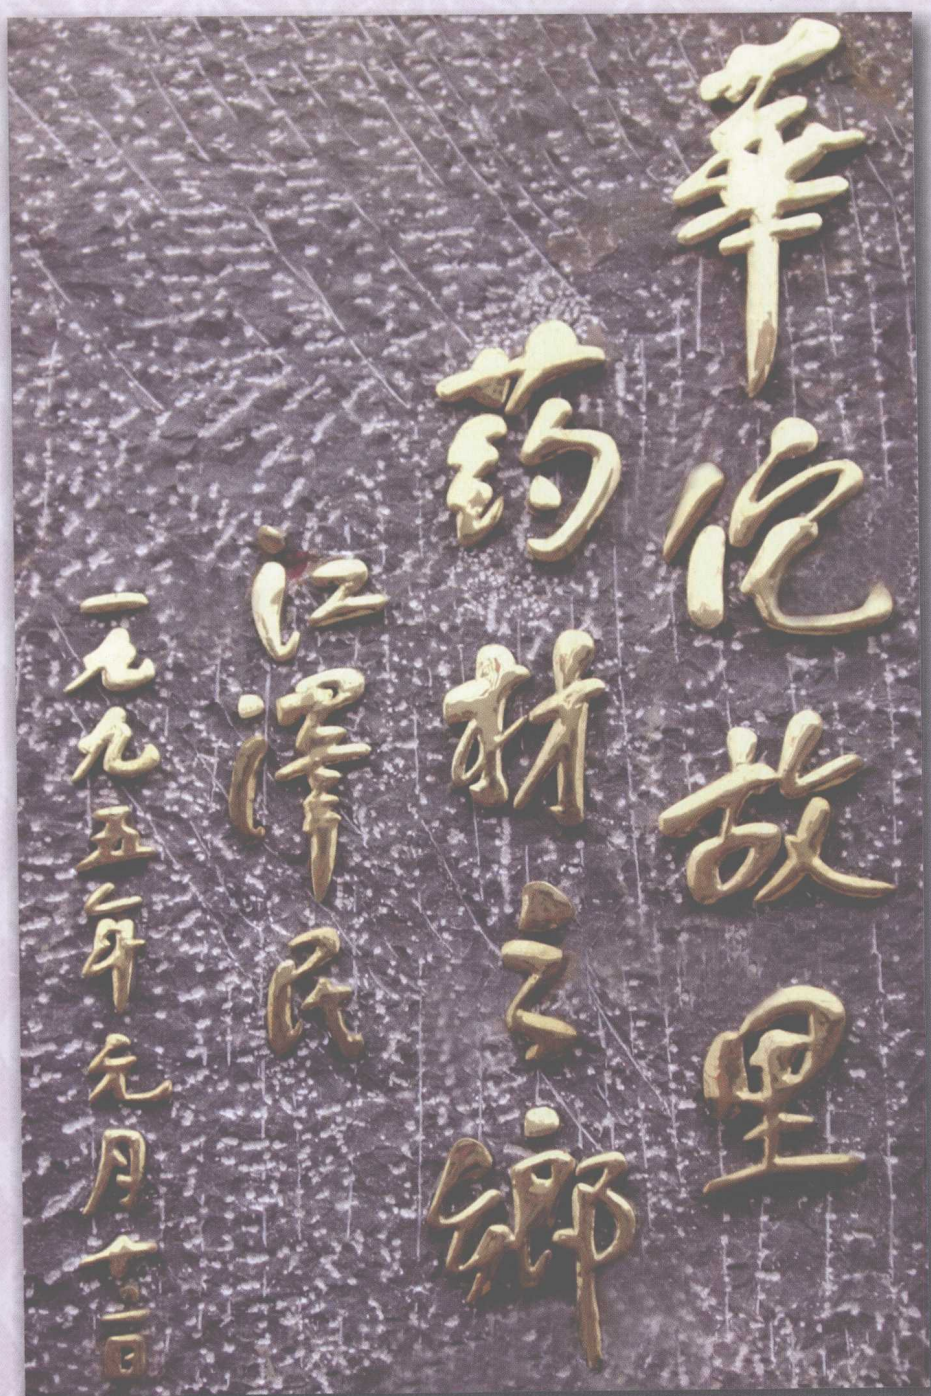 華佗故里
药材之鄉
江澤民
一九九五年元月十二日